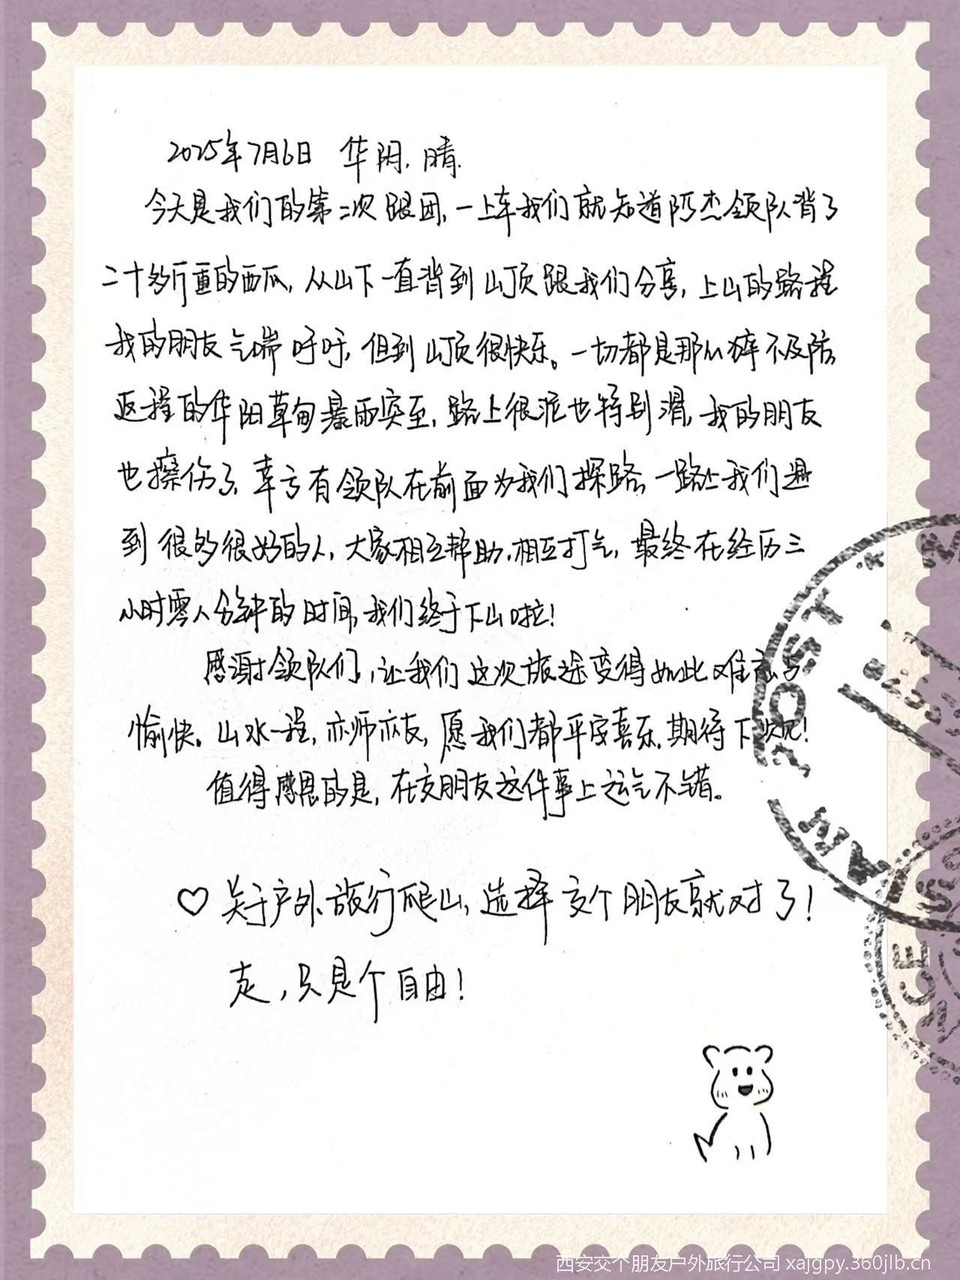 2025年7月6日 华阴.晴.
今天是我们的第二次跟团,一上车我们就知道阿杰领队背了
二十多斤重的西瓜,从山下一直背到山顶跟我们分享,上山的路程
我的朋友气喘吁吁,但到山顶很快乐。一切都是那么猝不及防,
返程的华阳草甸暴雨突至,路上很泥也特别滑,我的朋友
也擦伤了,幸亏有领队在前面为我们探路,一路上我们遇
到很多很好的人,大家相互帮助,相互打气,最终在经历三
小时零八分钟的时间,我们终于下山啦!
感谢领队们,让我们这次旅途变得如此难忘与
愉快。山水一程,亦师亦友,愿我们都平安喜乐,期待下次见!
值得感恩的是,在交朋友这件事上运气不错。
♡ 关于户外旅行爬山,选择交个朋友就对了!
走,只是个自由!
POST
西安交个朋友户外旅行公司 xajgpy.360jlb.cn